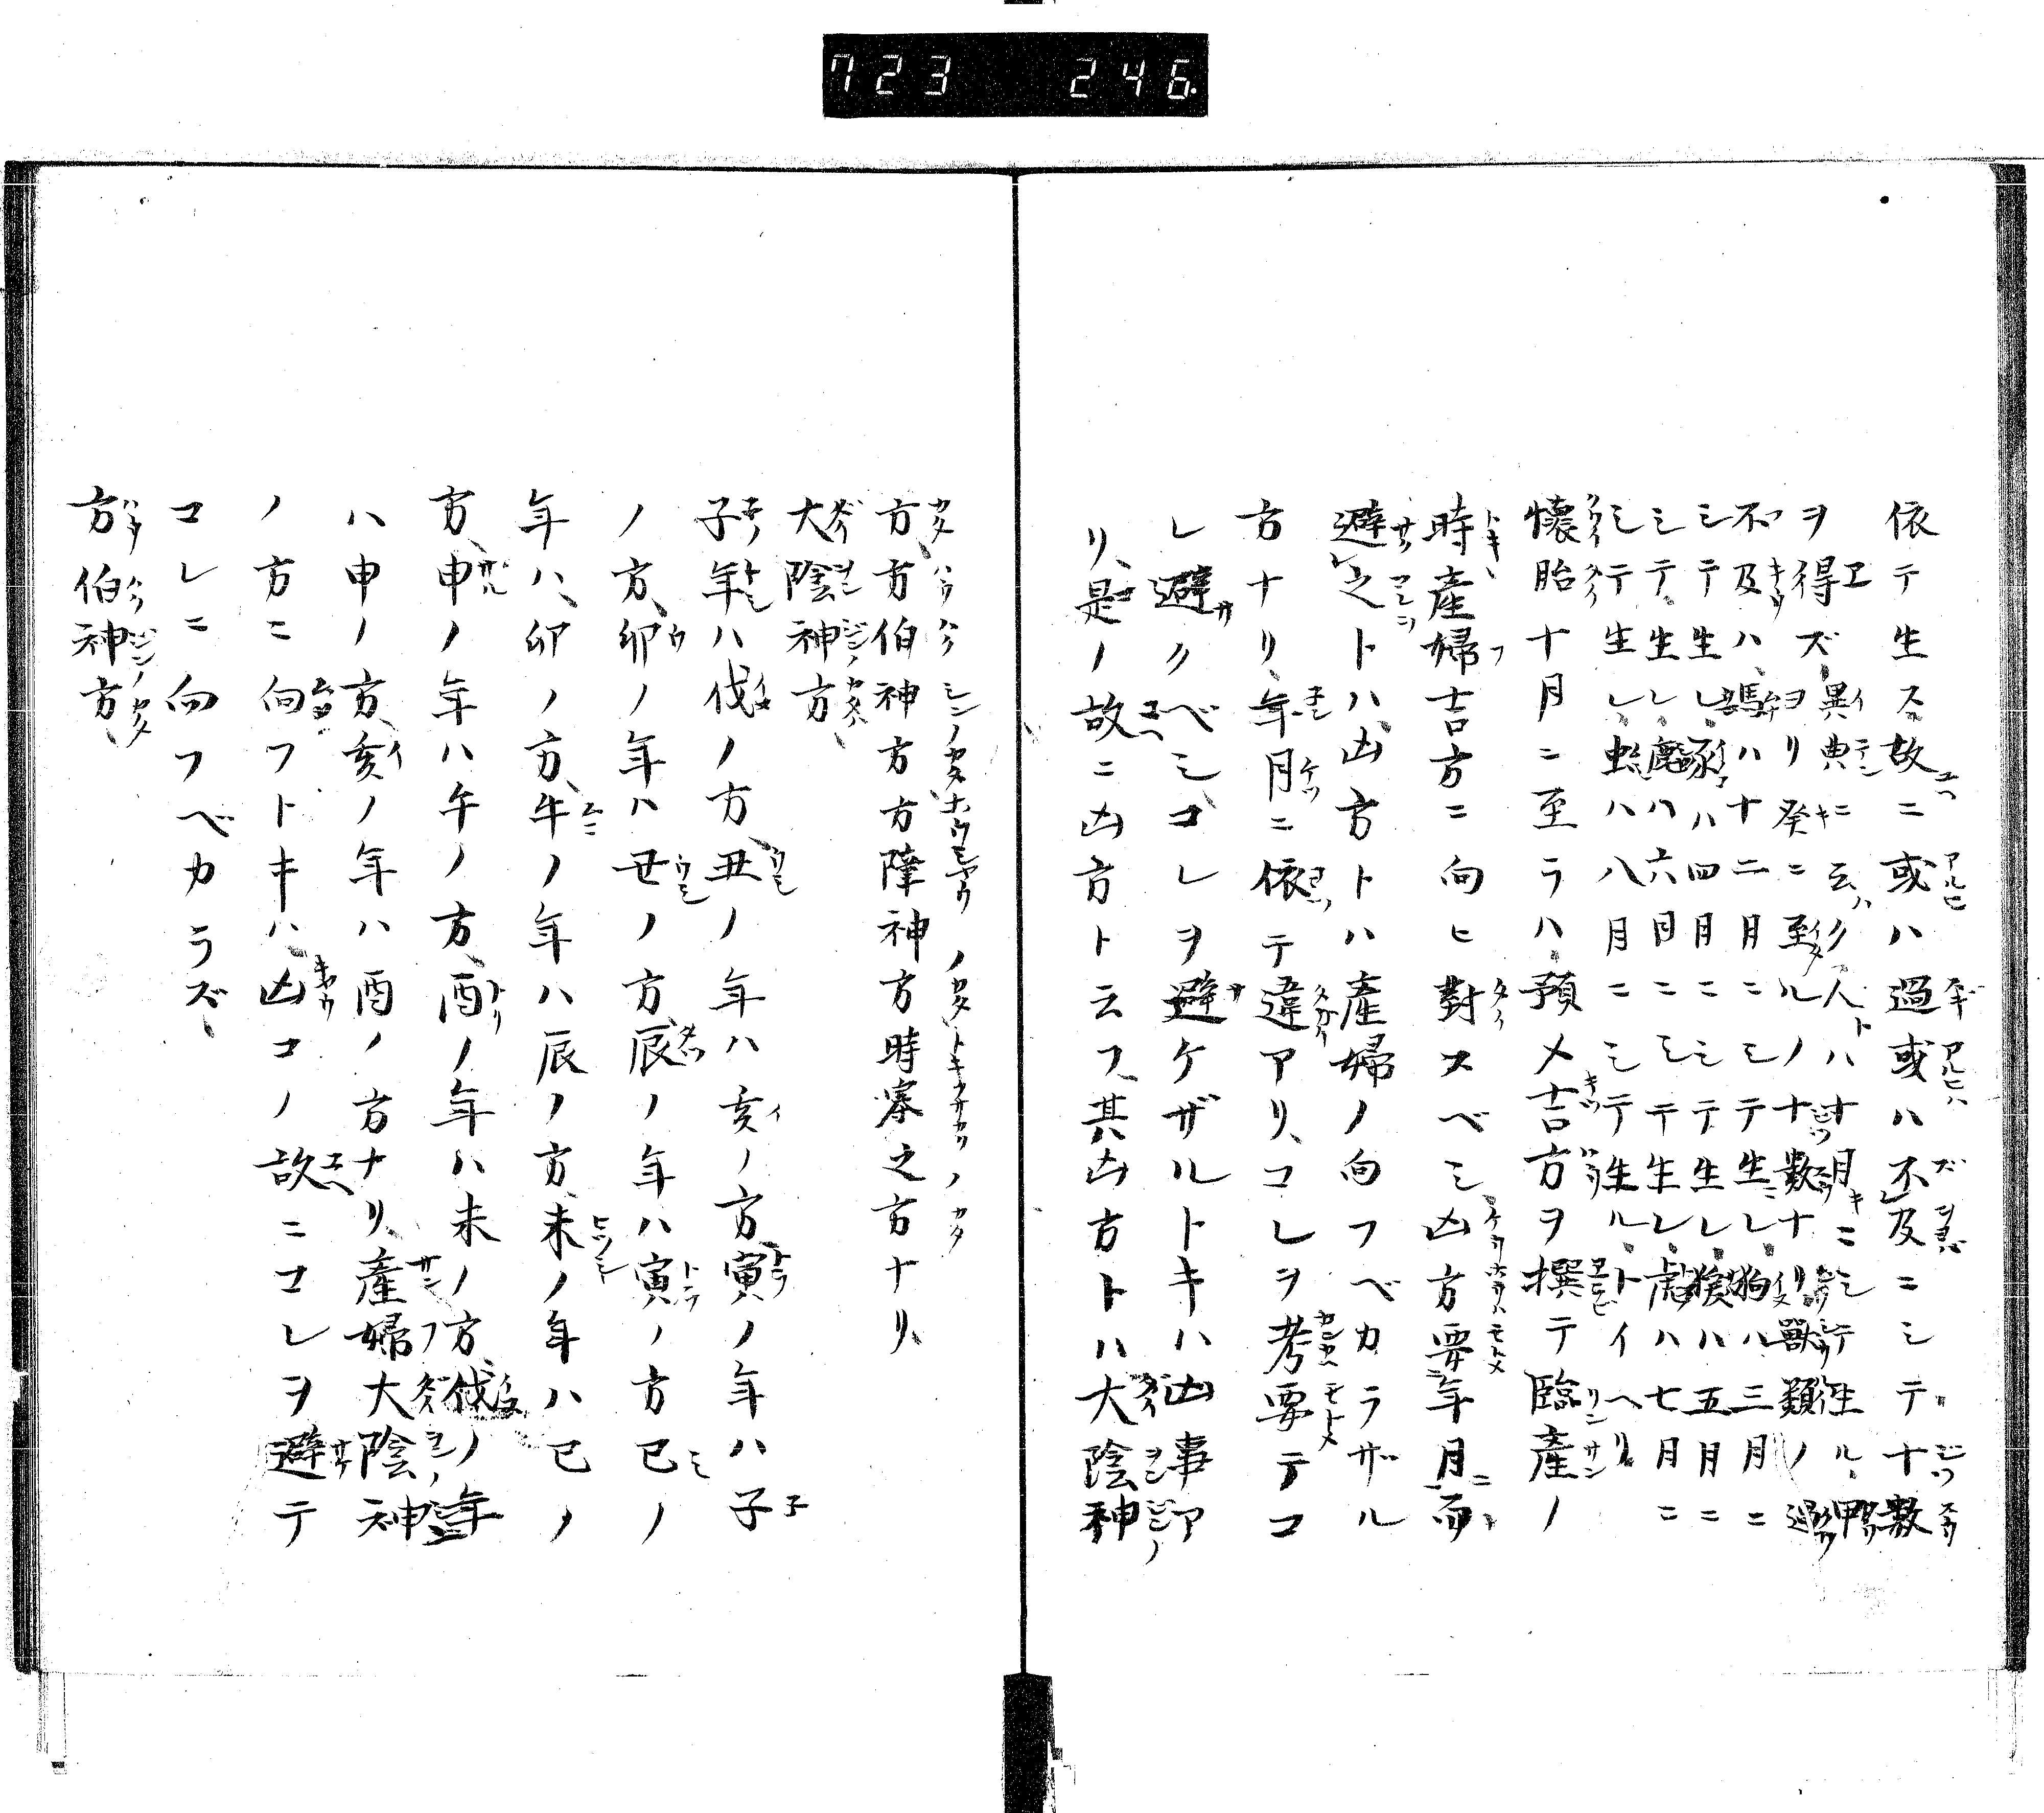 723 246.
依テ生ス故ニ或ハ過或ハ不及ニシテ十数
ヲ得ズ異典ニ云ク人ハ十月ニシテ生ル
ヨリ癸ニ至ルノ十数ナリ獣類ノ過
不及ハ馬ハ十二月ニシテ生レ狗ハ三月ニ
シテ生レ豕ハ四月ニシテ生レ猴ハ五月ニ
シテ生レ鹿ハ六月ニシテ生レ虎ハ七月ニ
シテ生レ虫ハ八月ニシテ生ルトイヘリ
懐胎十月ニ至ラハ預メ吉方ヲ撰テ臨産ノ
時産婦吉方ニ向ヒ對スベシ凶方要年月而
避之トハ凶方トハ産婦ノ向フベカラザル
方ナリ年月ニ依テ違アリコレヲ考要テコ
レ避クベシコレヲ避ケザルトキハ凶事ア
リ是ノ故ニ凶方ト云フ其凶方トハ大陰神
方方伯神方方隆神方時塞之方ナリ
大陰神方
子年ハ伐ノ方丑ノ年ハ亥ノ方寅ノ年ハ子
ノ方卯ノ年ハ丑ノ方辰ノ年ハ寅ノ方巳ノ
年ハ卯ノ方午ノ年ハ辰ノ方未ノ年ハ巳ノ
方申ノ年ハ午ノ方酉ノ年ハ未ノ方伐ノ年
ハ申ノ方亥ノ年ハ酉ノ方ナリ産婦大陰神
ノ方ニ向フトキハ凶コノ故ニコレヲ避テ
コレニ向フベカラズ
方伯神方